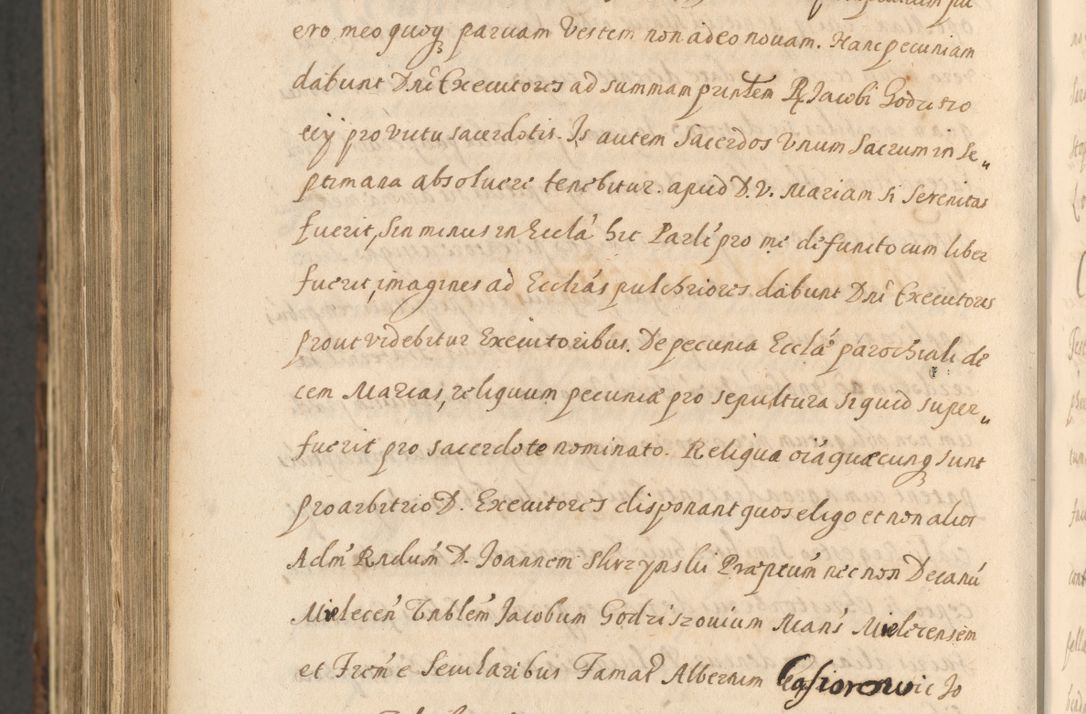 ero meo quoq paruam Vestem non adeo nouam. Hanc pecuniam
dabunt Dni Executores ad summam Jacobi
pro victu sacerdotis. Is autem Sacerdos Vnum Sacrum in Se„
ptimana absoluere tenebitur. apud D.V. Mariam si Serenitas
fuerit, Sin minus in Eccla hic pro me defuncto cum liber
fuerit, imagines ad Ecclias pulchriores dabunt Dni Executores
prout videbitur Executoribus. De pecunia Eccla parochiali de
cem Marcas, reliquum pecuniæ pro sepultura siquid super„
fuerit pro sacerdote nominato. Reliqua oia quæcunq sunt
pro arbitrio D. Executores disponant quos eligo et non alios
Adm Rndum D. Joannem Skrzynski Præptum nec non Decanu
Mielecen Jacobum Mans Mielecensem
et Secularibus Famat Albertum Jo